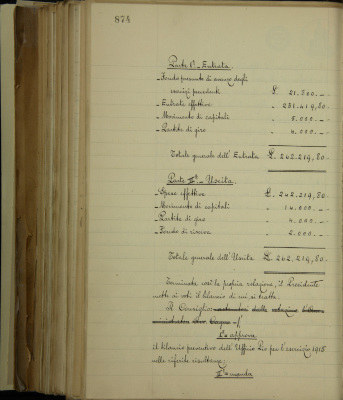 874
Parte Iª - Entrata
- Fondo presunto di avanzo degli
esercizi precedenti £. 21.500.--
- Entrate effettive " 231.419,80.-
- Movimento di capitali " 5.000.--
- Partite di giro " 4.000.--
Totale generale dell'Entrata £. 242.219,80-
Parte IIª - Uscita
- Spese effettive £. 242.219,80-
- Movimento di capitali " 14.000.--
- Partite di giro " 4.000.--
- Fondo di riserva " 2.000.--
Totale generale dell'Uscita £. 242.219,80-
Terminata così la propria relazione, il Presidente
mette ai voti il bilancio di cui si tratta.
Il Consiglio udita la relazione
1º = approva
il bilancio preventivo dell'Ufficio Pio per l'esercizio 1915
nelle riferite risultanze;
2º = manda